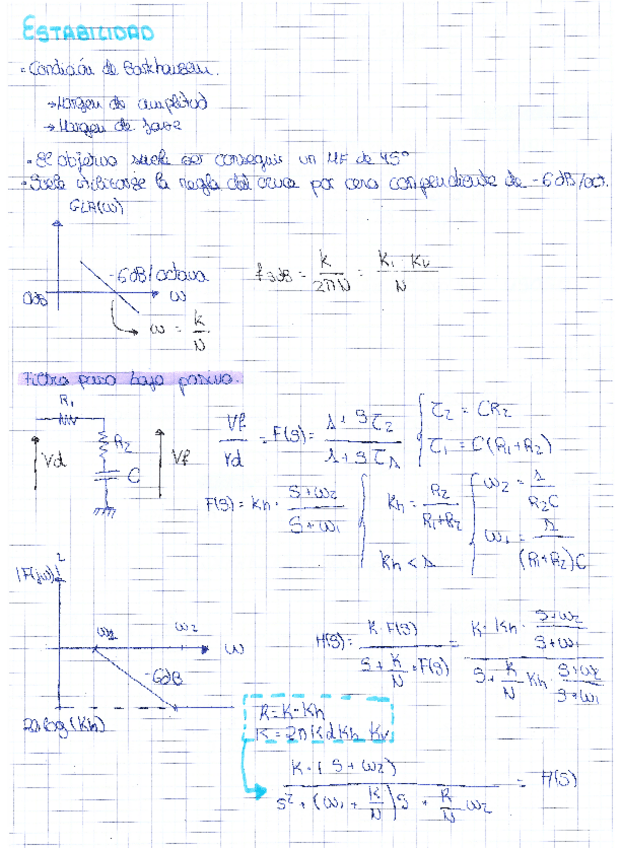 ESTABILIDAD
- Condición de Barkhausen.
→ Margen de amplitud
→ Margen de fase
- El objetivo suele ser conseguir un MF de 45°
- Suele utilizarse la regla del cruce por cero con pendiente de -6dB/oct.
GLA(ω)
-6dB/octava
0dB
ω
ω = K/N
f3dB = K/2πN = K1 Kv/N
Filtro paso bajo pasivo.
R1
R2
C
Vd
Vf
Vf/Vd = F(S) = 1 + Sτ2 / 1 + Sτ1
τ2 = CR2
τ1 = C(R1+R2)
F(S) = Kh · S+ω2 / S+ω1
Kh = R2 / R1+R2
Kh < 1
ω2 = 1 / R2C
ω1 = 1 / (R1+R2)C
|F(jω)|²
ω1
ω2
ω
-6dB
20log(Kh)
H(S) = K·F(S) / S + K/N · F(S) = K · Kh · S+ω2/S+ω1 / S + K/N Kh · S+ω2/S+ω1
K = K·Kh
K = 2π Kd Kh Kv
K · (S + ω2) / S² + (ω1 + K/N)S + K/N ω2 = H(S)